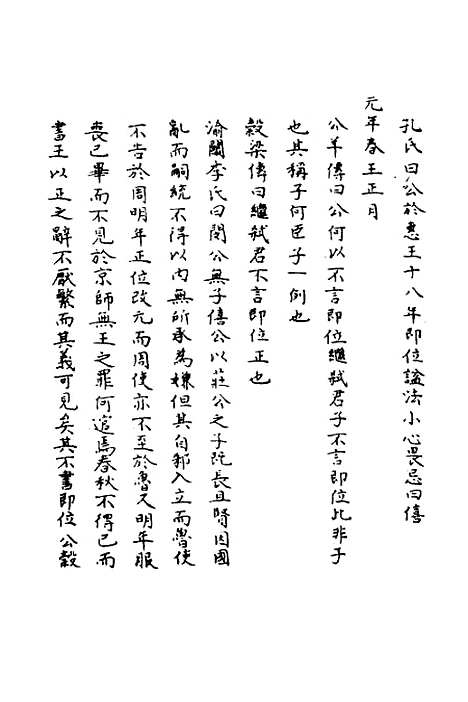 孔氏曰公於惠王十八年即位謚法小心畏忌曰僖
元年春王正月
公羊傳曰公何以不言即位繼弒君子不言即位此非子
也其稱子何臣子一例也
穀梁傳曰繼弒君不言即位正也
渝關李氏曰閔公無子僖公以莊公之子旣長且賢因國
亂而嗣統不得以內無所承為嫌但其自邾入立而魯使
不告於周明年正位改元而周使亦不至於魯又明年服
喪已畢而不見於京師無王之罪何逭焉春秋不得已而
書王以正之辭不厭繁而其義可見矣其不書即位公穀